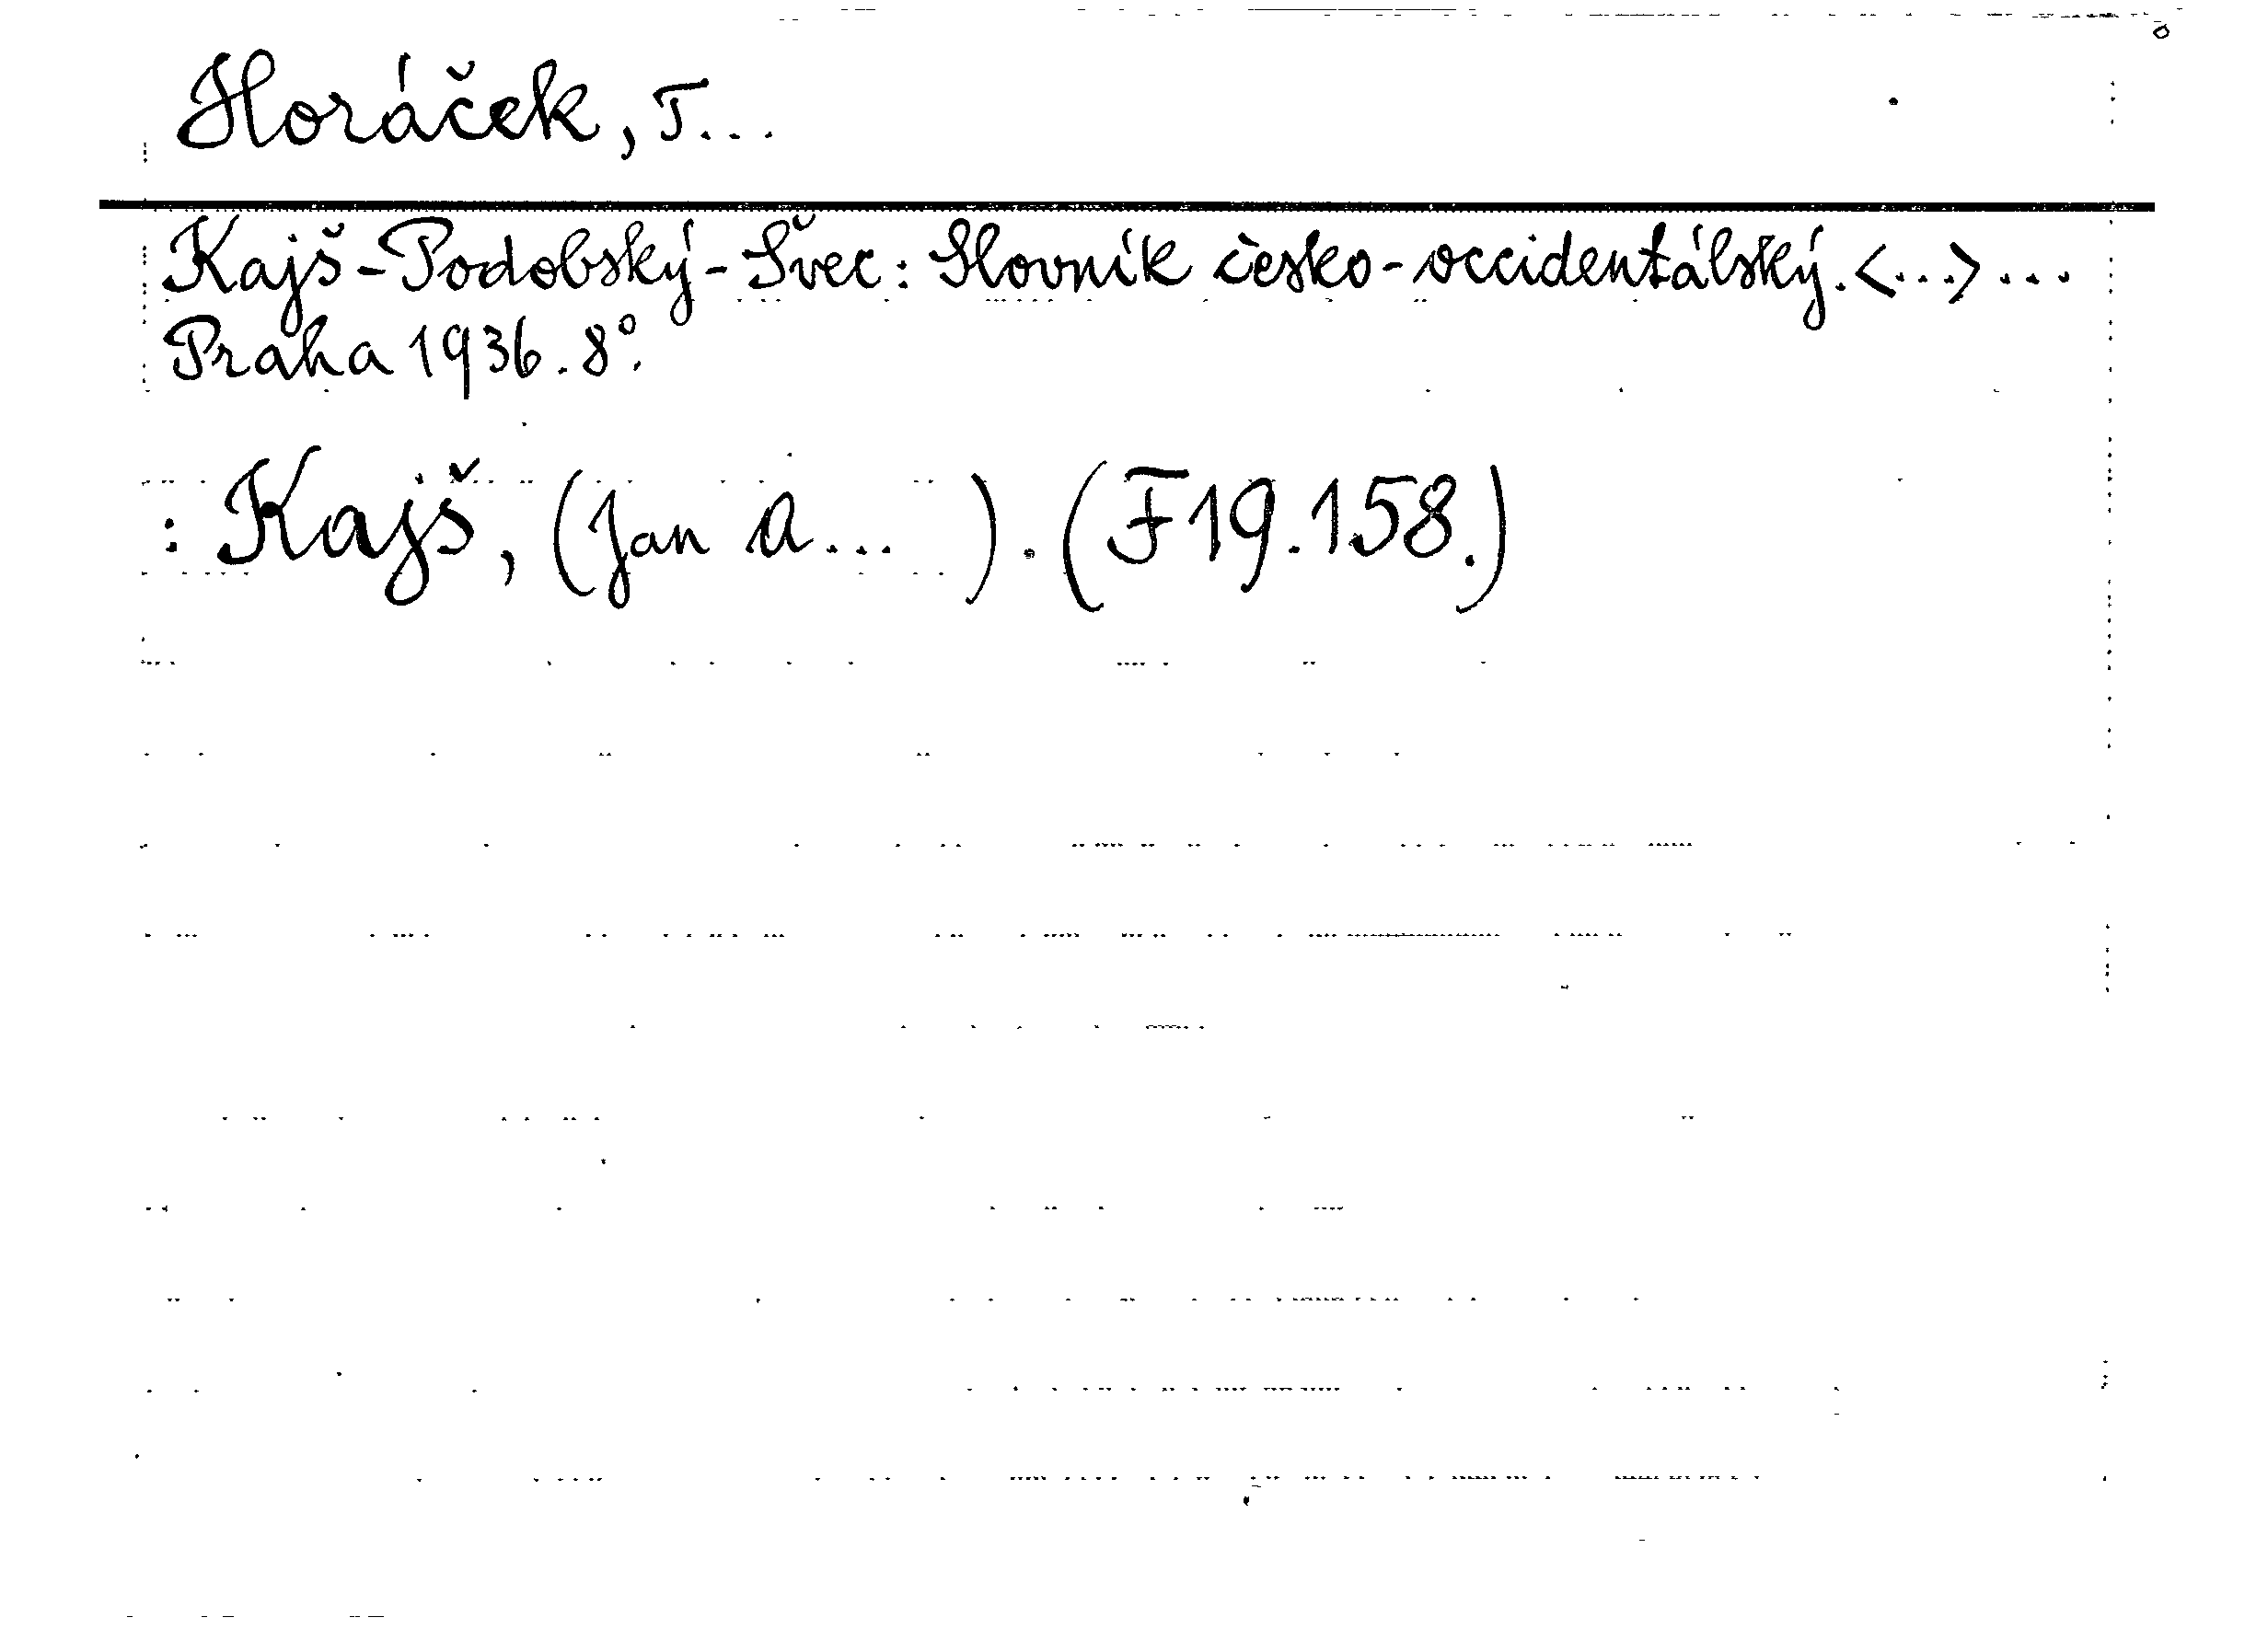 Horáček, T...
Kajš-Podobský-Švec: Slovník česko-occidentálský. <...> ...
Praha 1936. 8°.
: Kajš, (Jan A... ). (F 19.158.)